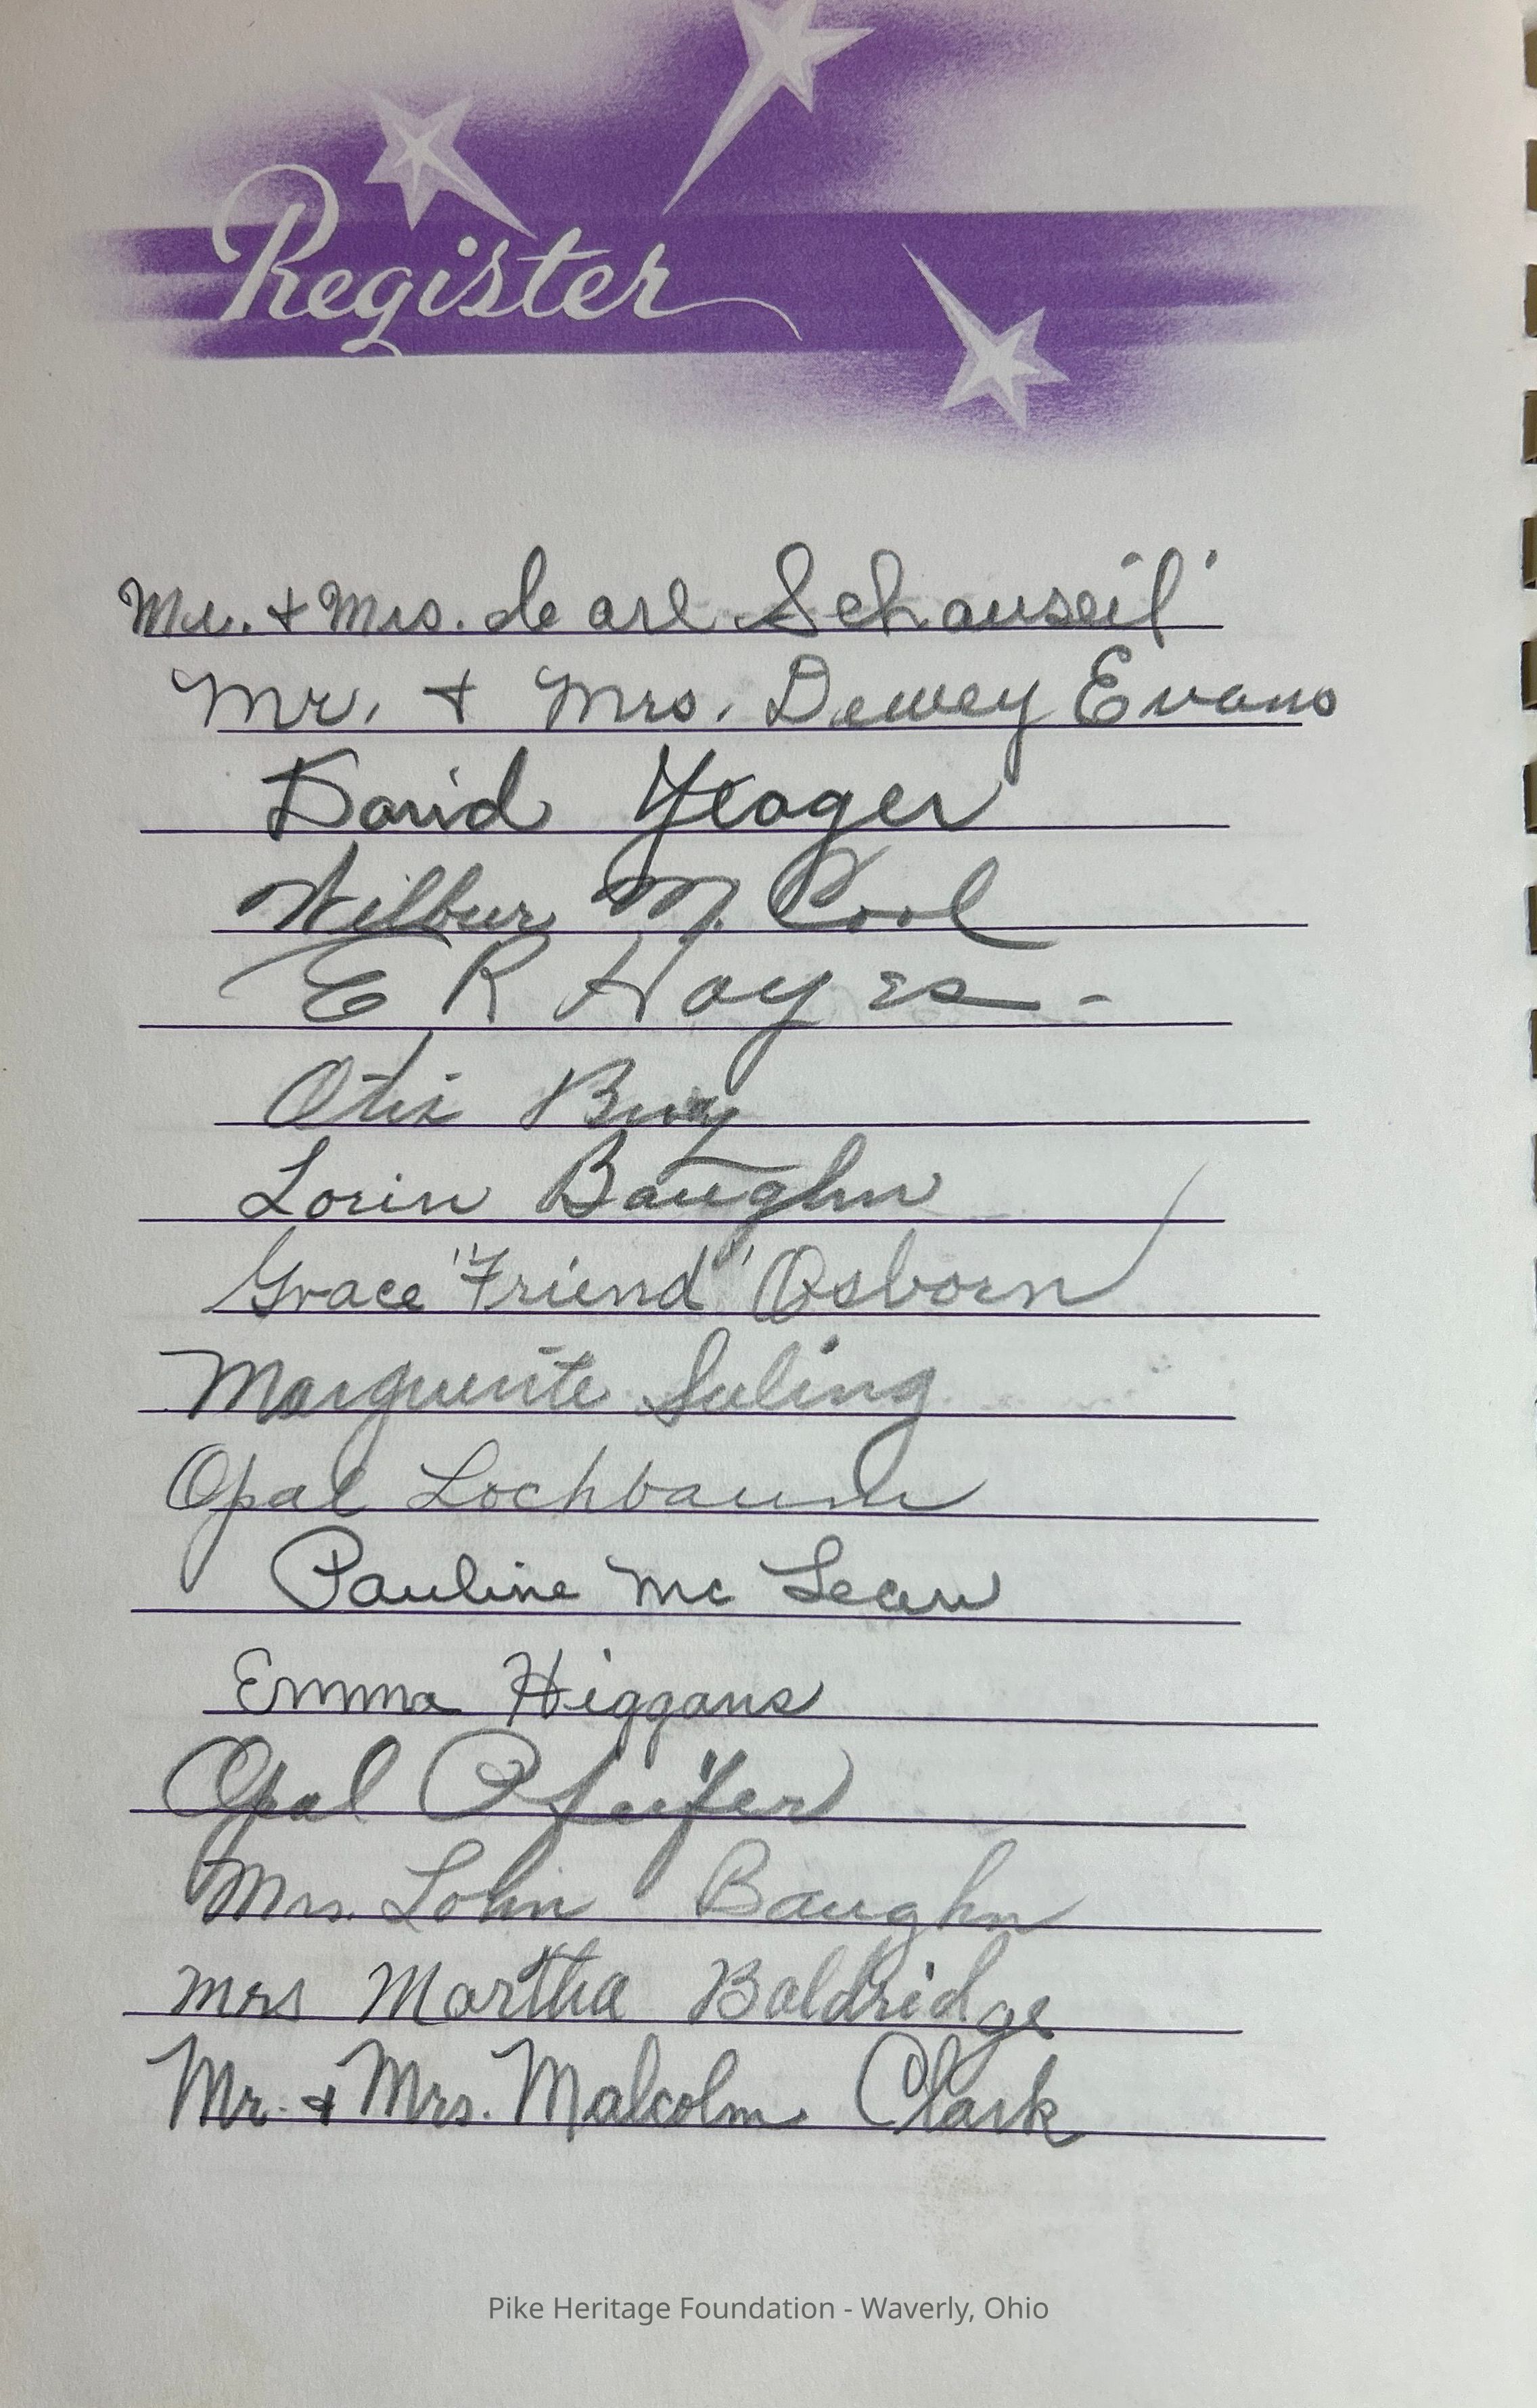 Register
Mr. & Mrs. Carl Schauseil
Mr. & Mrs. Dewey Evans
David Yeager
Wilbur M. Cool
E R Hayes -
Otis
Lorin Baughn
Grace "Friend" Osborn
Marguerite Suling
Opal Lochbaum
Pauline Mc Lean
Emma Higgans
Opal Pfeifer
Mrs. Baughn
Mrs Martha Baldridge
Mr. & Mrs. Malcolm Clark
Pike Heritage Foundation - Waverly, Ohio